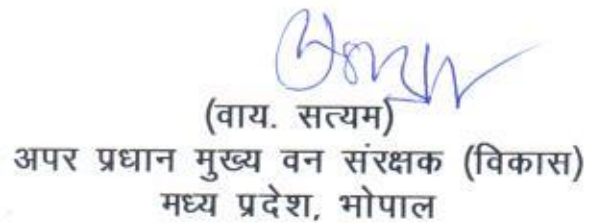 (वाय. सत्यम)
अपर प्रधान मुख्य वन संरक्षक (विकास)
मध्य प्रदेश, भोपाल